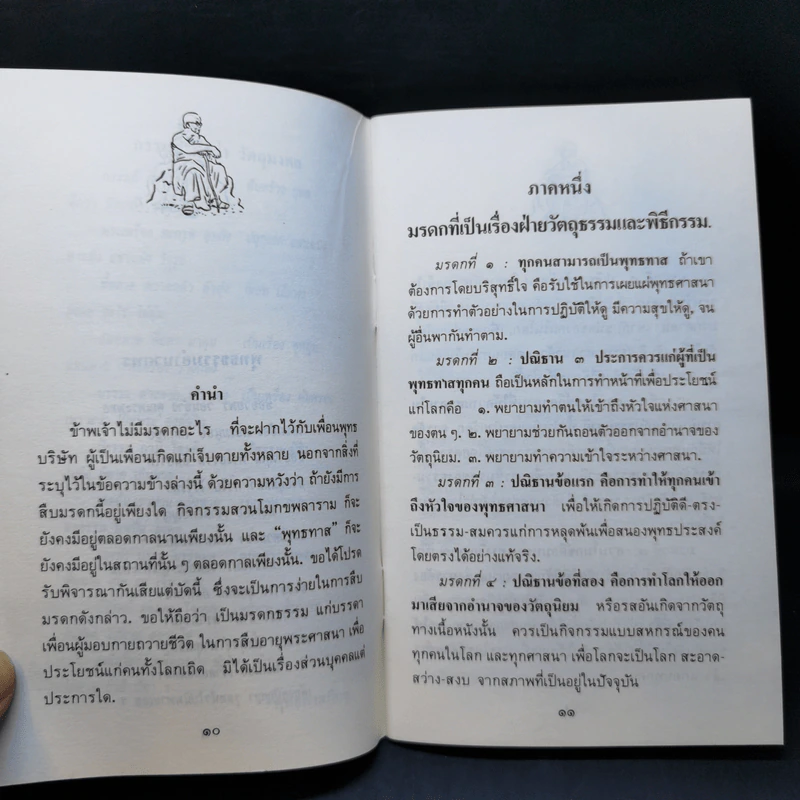 คำนำ
ข้าพเจ้าไม่มีมรดกอะไร ที่จะฝากไว้กับเพื่อนพุทธ
บริษัท ผู้เป็นเพื่อนเกิดแก่เจ็บตายทั้งหลาย นอกจากสิ่งที่
ระบุไว้ในข้อความข้างล่างนี้ ด้วยความหวังว่า ถ้ายังมีการ
สืบมรดกนี้อยู่เพียงใด กิจกรรมสวนโมกขพลาราม ก็จะ
ยังคงมีอยู่ตลอดกาลนานเพียงนั้น และ “พุทธทาส” ก็จะ
ยังคงมีอยู่ในสถานที่นั้น ๆ ตลอดกาลเพียงนั้น. ขอได้โปรด
รับพิจารณากันเสียแต่บัดนี้ ซึ่งจะเป็นการง่ายในการสืบ
มรดกดังกล่าว. ขอให้ถือว่า เป็นมรดกธรรม แก่บรรดา
เพื่อนผู้มอบกายถวายชีวิต ในการสืบอายุพระศาสนา เพื่อ
ประโยชน์แก่คนทั้งโลกเถิด มิได้เป็นเรื่องส่วนบุคคลแต่
ประการใด.
๑๐
ภาคหนึ่ง
มรดกที่เป็นเรื่องฝ่ายวัตถุธรรมและพิธีกรรม.
มรดกที่ ๑ : ทุกคนสามารถเป็นพุทธทาส ถ้าเขา
ต้องการโดยบริสุทธิ์ใจ คือรับใช้ในการเผยแผ่พุทธศาสนา
ด้วยการทำตัวอย่างในการปฏิบัติให้ดู มีความสุขให้ดู, จน
ผู้อื่นพากันทำตาม.
มรดกที่ ๒ : ปณิธาน ๓ ประการควรแก่ผู้ที่เป็น
พุทธทาสทุกคน ถือเป็นหลักในการทำหน้าที่เพื่อประโยชน์
แก่โลกคือ ๑. พยายามทำตนให้เข้าถึงหัวใจแห่งศาสนา
ของตน ๆ. ๒. พยายามช่วยกันถอนตัวออกจากอำนาจของ
วัตถุนิยม. ๓. พยายามทำความเข้าใจระหว่างศาสนา.
มรดกที่ ๓ : ปณิธานข้อแรก คือการทำให้ทุกคนเข้า
ถึงหัวใจของพุทธศาสนา เพื่อให้เกิดการปฏิบัติดี-ตรง-
เป็นธรรม-สมควรแก่การหลุดพ้นเพื่อสนองพุทธประสงค์
โดยตรงได้อย่างแท้จริง.
มรดกที่ ๔ : ปณิธานข้อที่สอง คือการทำโลกให้ออก
มาเสียจากอำนาจของวัตถุนิยม หรือรสอันเกิดจากวัตถุ
ทางเนื้อหนังนั้น ควรเป็นกิจกรรมแบบสหกรณ์ของคน
ทุกคนในโลก และทุกศาสนา เพื่อโลกจะเป็นโลก สะอาด-
สว่าง-สงบ จากสภาพที่เป็นอยู่ในปัจจุบัน
๑๑